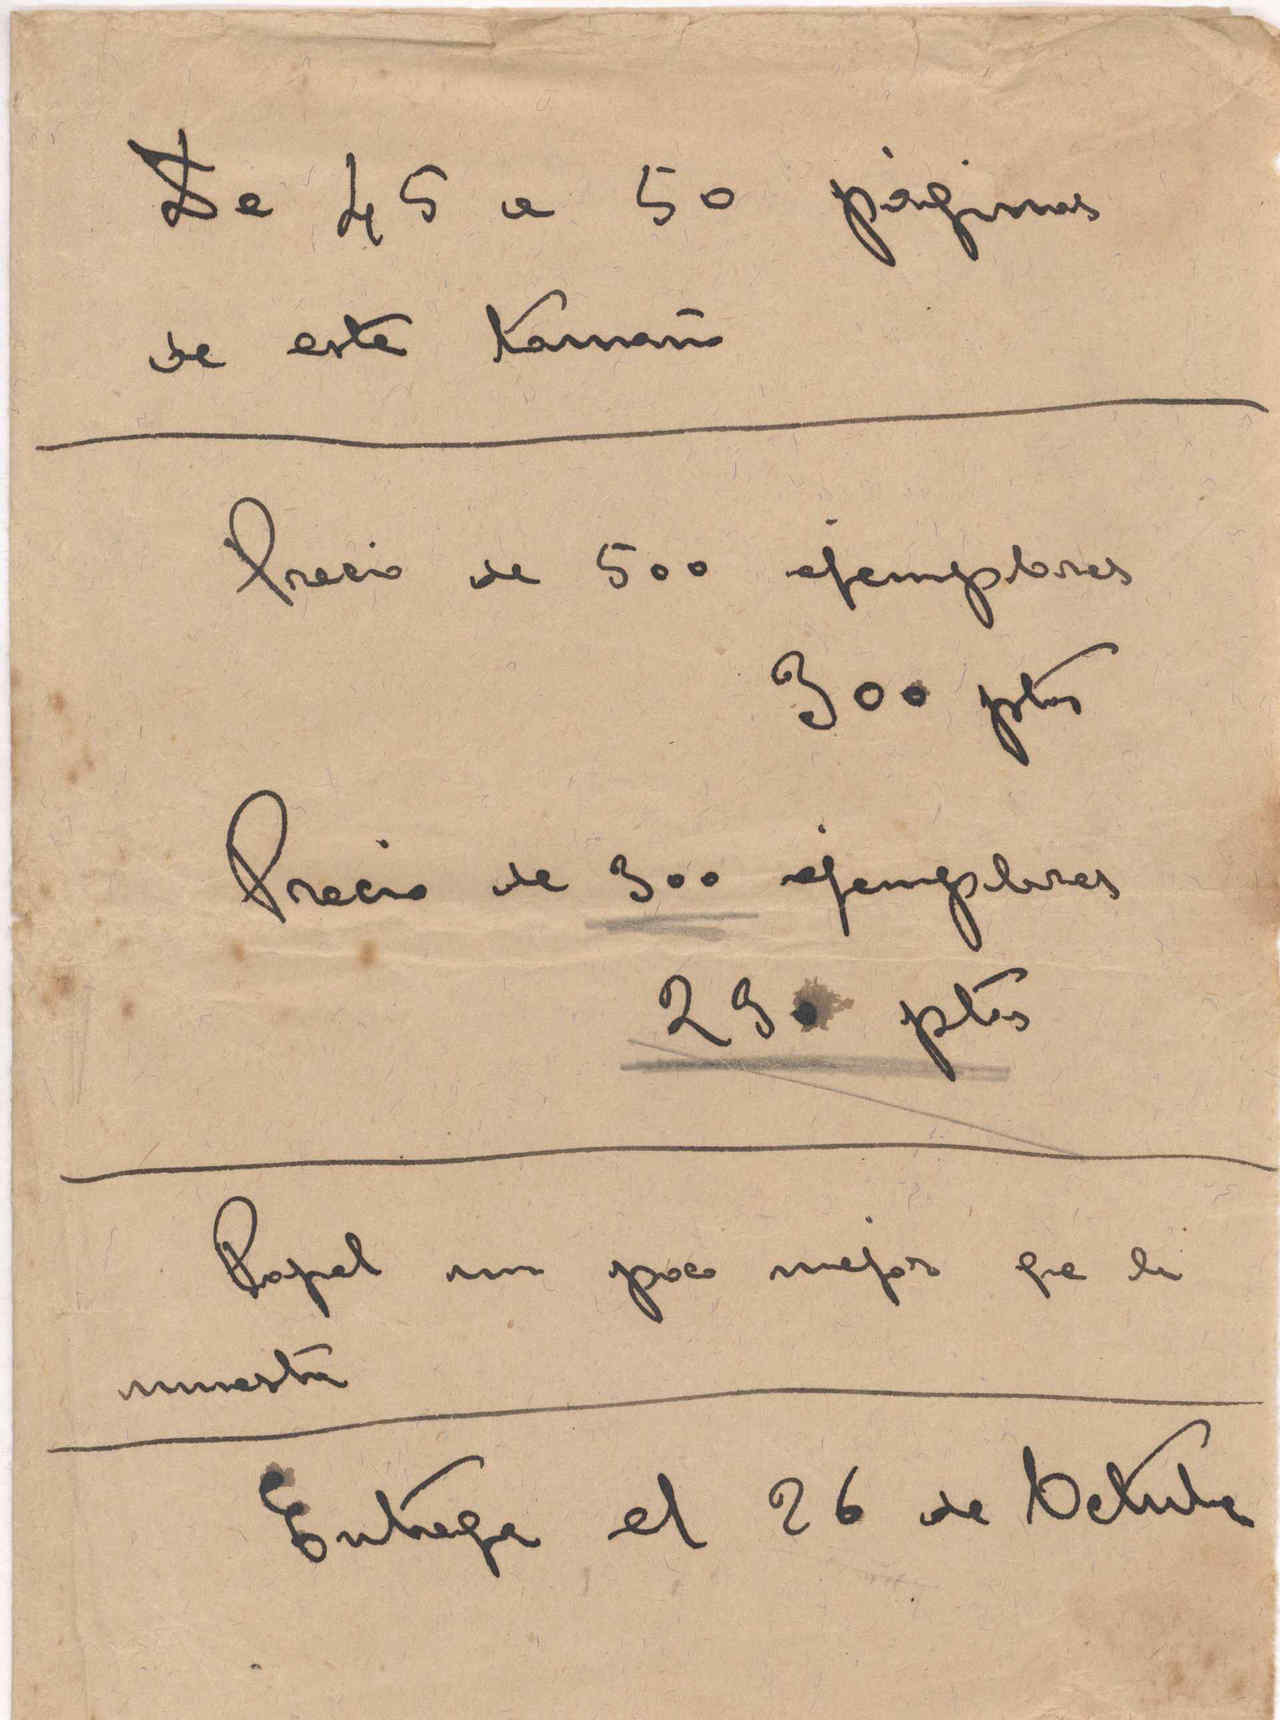 De 45 a 50 páginas
de este tamaño
Precio de 500 ejemplares
300 ptas
Precio de 300 ejemplares
ptas
Papel un poco mejor que la
muestra
Entrega el 26 de Octubre